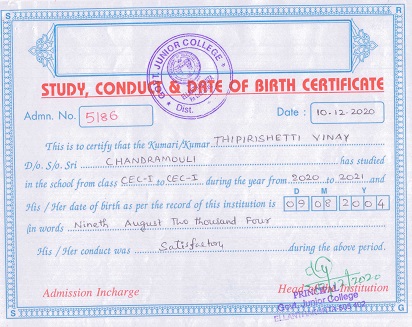 GOVT. JUNIOR COLLEGE
Dist.
STUDY, CONDUCT & DATE OF BIRTH CERTIFICATE
Admn. No. 5186 Date : 10-12-2020
This is to certify that the Kumari/Kumar THIPIRISHETTI VINAY
D/o. S/o. Sri CHANDRAMOULI has studied
in the school from class CEC-I to CEC-I during the year from 2020 to 2021 and
D M Y
His / Her date of birth as per the record of this institution is 09 08 2004
(in words Nineth August Two thousand Four
His / Her conduct was Satisfactory during the above period.
Admission Incharge Head of the Institution
PRINCIPAL
Govt. Junior College